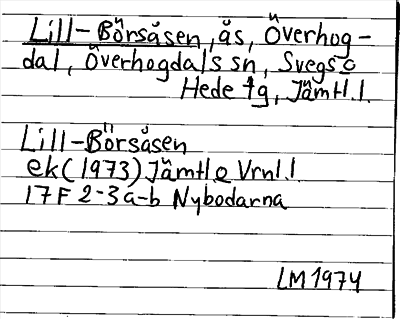 Lill-Börsåsen, ås, Överhog-
dal, Överhogdals sn, Svegs o
Hede tg, Jämtl. l.
Lill-Börsåsen
ek (1973) Jämtl o Vrnl. l.
17F 2-3 a-b Nybodarna
LM 1974